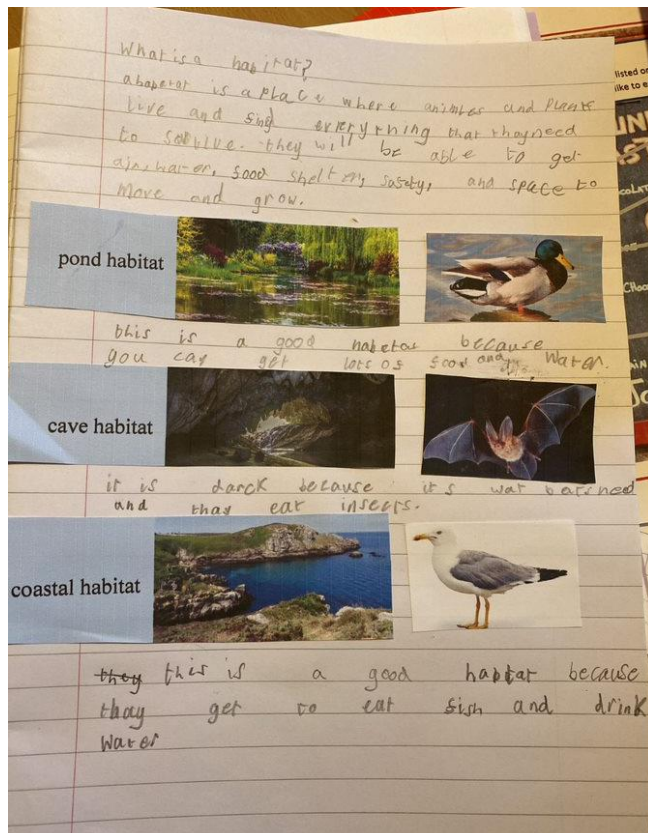 What is a habitat?
a haperat is a place where animles and plants
live and find everything that thay need
to survive. they will be able to get
air, water, food shelter, safety, and space to
move and grow.
pond habitat
this is a good habetat because
you can get lots of food and water.
cave habitat
it is darck because it's wat bats need
and thay eat insects.
coastal habitat
they this is a good habitat because
thay get to eat fish and drink
water
listed on
like to e
UN
ST
COLAT
Choc
AIN